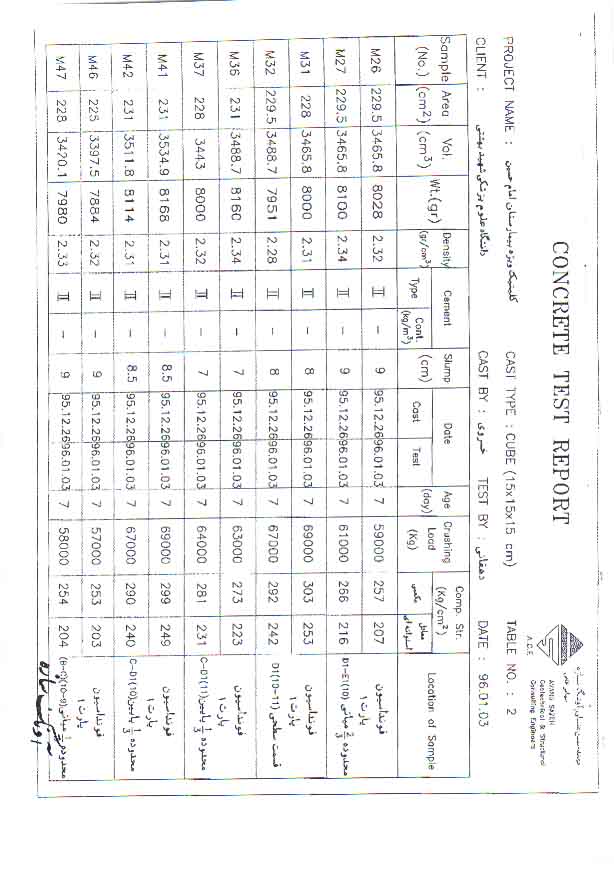 CONCRETE TEST REPORT
AVANG SAZEH
Geotechnical & Structural
Consulting Engineers
PROJECT NAME : کلینیک ویژه بیمارستان امام حسین CAST TYPE : CUBE (15x15x15 cm) TABLE NO. : 2
CLIENT : دانشگاه علوم پزشکی شهید بهشتی CAST BY : خسروی TEST BY : دهقانی DATE : 96.01.03
Sample (No.) Area (cm2) Vol. (cm3) Wt.(gr) Density (gr/cm3) Cement Type Cont. (kg/m3) Slump (cm) Date Cast Test Age (day) Crushing Load (Kg) Comp. Str. (Kg/cm2) مکعبی معادل استوانه ای Location of Sample
M26 229.5 3465.8 8028 2.32 II – 9 95.12.26 96.01.03 7 59000 257 207 فونداسیون پارت ۱
M27 229.5 3465.8 8100 2.34 II – 9 95.12.26 96.01.03 7 61000 266 216 محدوده 2/3 میانی D1-E1(10)
M31 228 3465.8 8000 2.31 II – 8 95.12.26 96.01.03 7 69000 303 253 فونداسیون پارت ۱
M32 229.5 3488.7 7951 2.28 II – 8 95.12.26 96.01.03 7 67000 292 242 قسمت سطحی D1(10-11)
M36 231 3488.7 8160 2.34 II – 7 95.12.26 96.01.03 7 63000 273 223 فونداسیون پارت ۱
M37 228 3443 8000 2.32 II – 7 95.12.26 96.01.03 7 64000 281 231 محدوده 1/3 پایین C-D1(11)
M41 231 3534.9 8168 2.31 II – 8.5 95.12.26 96.01.03 7 69000 299 249 فونداسیون پارت ۱
M42 231 3511.8 8114 2.31 II – 8.5 95.12.26 96.01.03 7 67000 290 240 محدوده 1/3 پایین C-D1(10)
M46 225 3397.5 7884 2.32 II – 9 95.12.26 96.01.03 7 57000 253 203 فونداسیون پارت ۱
M47 228 3420.1 7980 2.33 II – 9 95.12.26 96.01.03 7 58000 254 204 محدوده 1/3 میانی